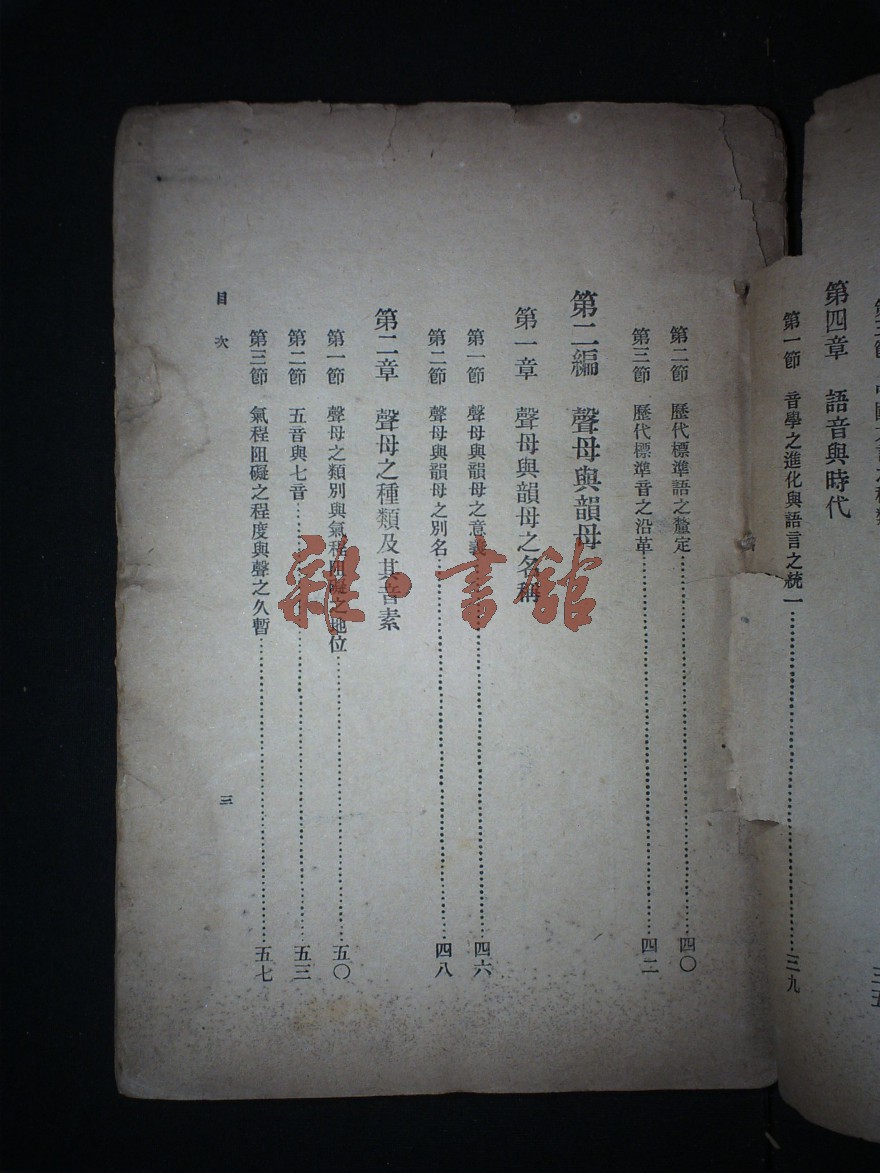 三五
第四章　語音與時代
第一節　音學之進化與語言之統一……三九
第二節　歷代標準語之釐定……四〇
第三節　歷代標準音之沿革……四二
第二編　聲母與韻母
第一章　聲母與韻母之名稱
第一節　聲母與韻母之意義……四六
第二節　聲母與韻母之別名……四八
第二章　聲母之種類及其音素
第一節　聲母之類別與氣程阻礙之地位……五〇
第二節　五音與七音……五三
第三節　氣程阻礙之程度與聲之久暫……五七
目次　三
雜·書館